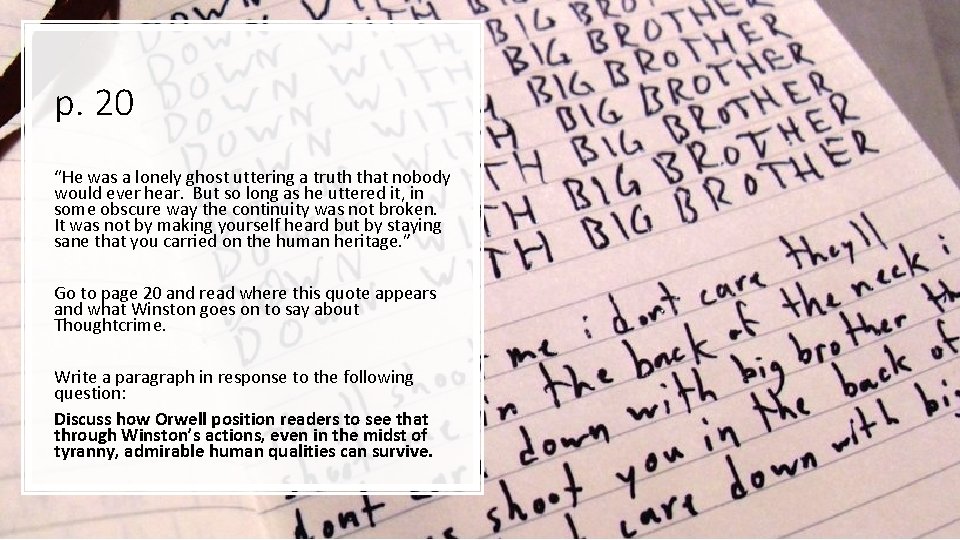 p. 20
“He was a lonely ghost uttering a truth that nobody
would ever hear. But so long as he uttered it, in
some obscure way the continuity was not broken.
It was not by making yourself heard but by staying
sane that you carried on the human heritage.”
Go to page 20 and read where this quote appears
and what Winston goes on to say about
Thoughtcrime.
Write a paragraph in response to the following
question:
Discuss how Orwell position readers to see that
through Winston’s actions, even in the midst of
tyranny, admirable human qualities can survive.
BIG BROTHER
BIG BROTHER
DOWN WITH BIG BROTHER
DOWN WITH BIG BROTHER
DOWN WITH BIG BROTHER
DOWN WITH BIG BROTHER
DOWN WITH BIG BROTHER
me i dont care they'll
in the back of the neck i
down with big brother
shoot you in the back of
dont care down with